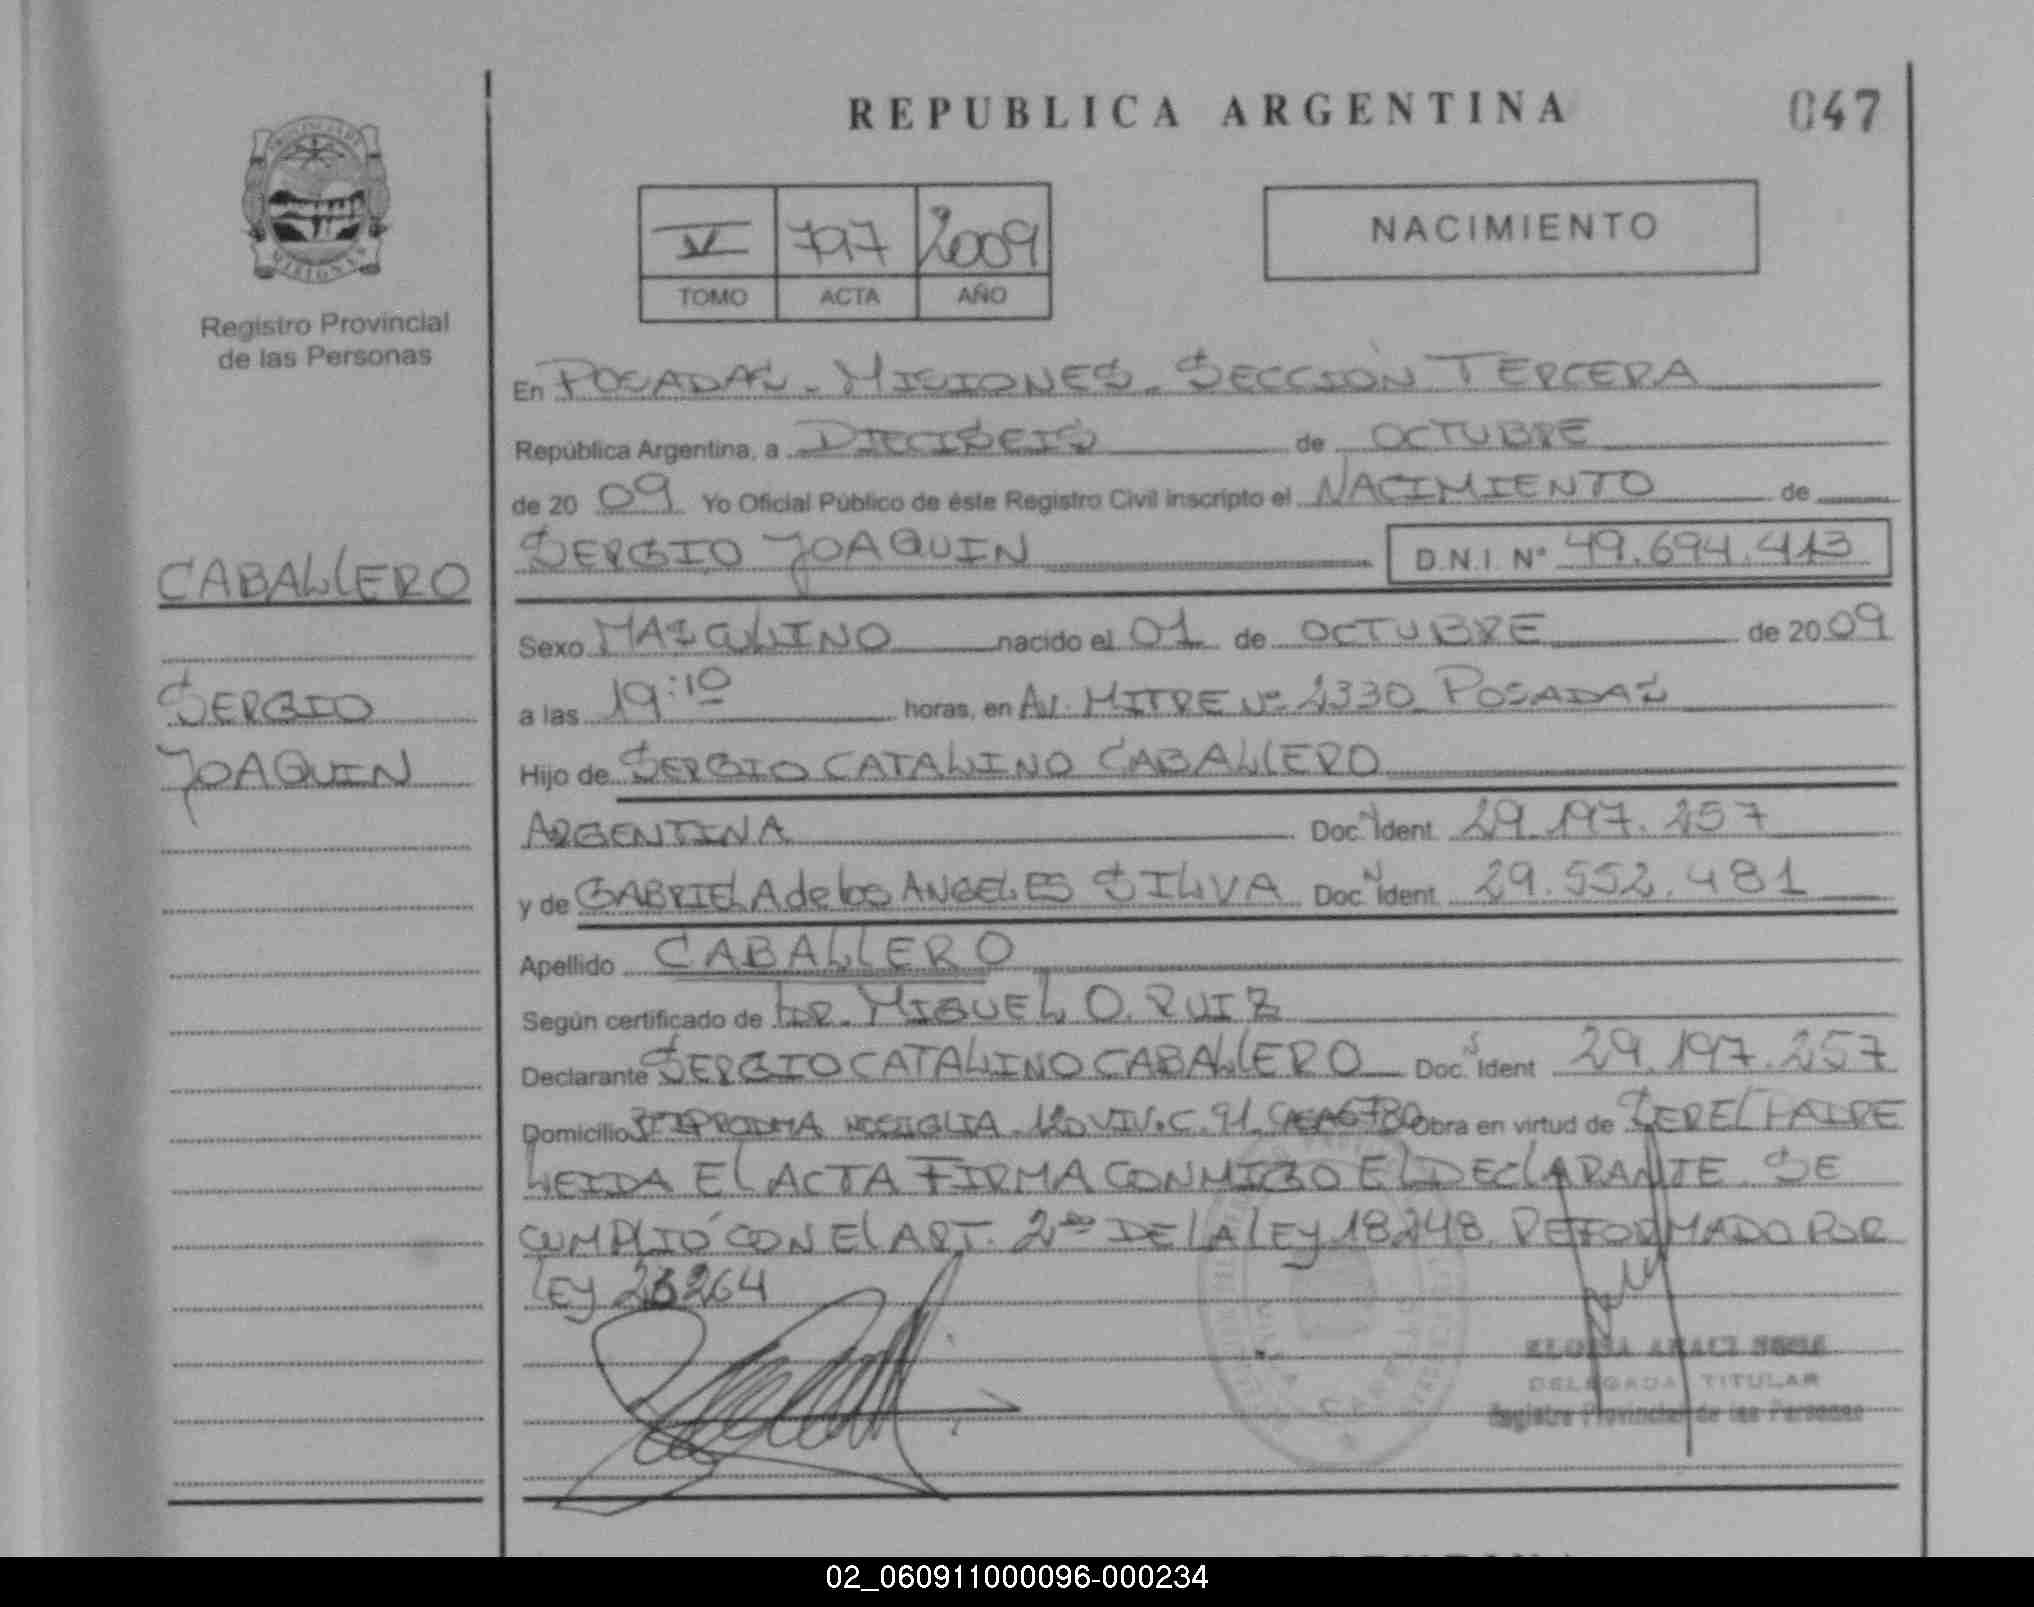 REPUBLICA ARGENTINA
047
NACIMIENTO
IV 797 2009
TOMO ACTA AÑO
Registro Provincial
de las Personas
CABALLERO
SERGIO
JOAQUIN
En POSADAS - MISIONES - SECCION TERCERA
República Argentina, a DIECISEIS de OCTUBRE
de 2009 Yo Oficial Público de éste Registro Civil inscripto el NACIMIENTO de
SERGIO JOAQUIN D.N.I. Nº 49.694.413
Sexo MASCULINO nacido el 01 de OCTUBRE de 2009
a las 19:10 horas, en AV. MITRE Nº 2330 POSADAS
Hijo de SERGIO CATALINO CABALLERO
ARGENTINA Doc. Ident. 29.197.257
y de GABRIELA de los ANGELES SILVA Doc. Ident. 29.552.481
Apellido CABALLERO
Según certificado de DR. MIGUEL O. RUIZ
Declarante SERGIO CATALINO CABALLERO Doc. Ident 29.197.257
Domicilio 120 VIV. C. 91 Obra en virtud de SER EL PADRE
LEIDA EL ACTA FIRMA CONMIGO EL DECLARANTE. SE
CUMPLIÓ CON EL ART. 2do DE LA LEY 18248 REFORMADO POR
LEY 23264
DELEGADA TITULAR
Registro Provincial de las Personas
02_060911000096-000234